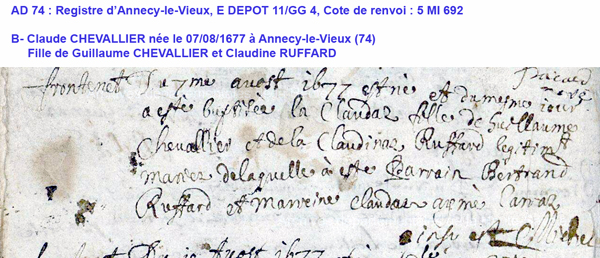 AD 74 : Registre d'Annecy-le-Vieux, E DEPOT 11/GG 4, Cote de renvoi : 5 MI 692
B- Claude CHEVALLIER née le 07/08/1677 à Annecy-le-Vieux (74)
Fille de Guillaume CHEVALLIER et Claudine RUFFARD
frontenet Du 7me aoust 1677 est né et du mesme iour
a este la Claudaz fille de Guillaume
Chevallier et de la Claudinaz Ruffard legitim
mariez delaquelle a este Parrain Bertrand
Ruffard et marreine Claudaz
ainsy est
aoust 1677